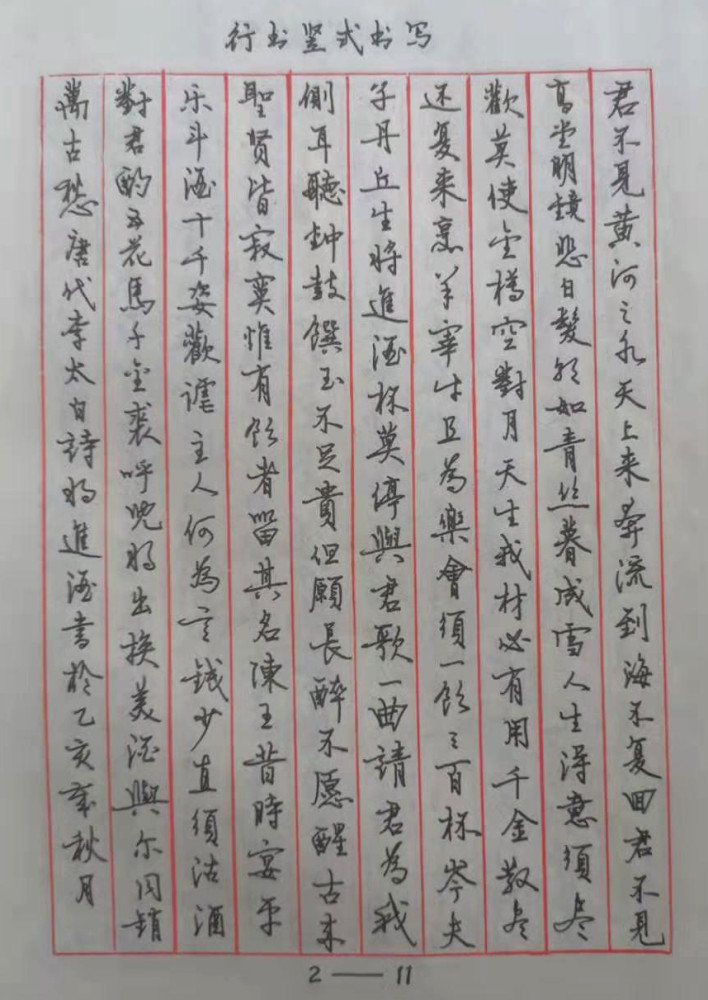 行书竖式书写
君不見黄河之水天上来奔流到海不复回君不見
高堂明鏡悲白髮朝如青丝暮成雪人生得意须尽
歡莫使金樽空對月天生我材必有用千金散尽
还复来烹羊宰牛且為樂會須一飲三百杯岑夫
子丹丘生将進酒杯莫停與君歌一曲請君為我
側耳聽鈡鼓饌玉不足貴但願長醉不愿醒古来
聖贤皆寂寞惟有飲者留其名陳王昔時宴平
乐斗酒十千姿歡謔主人何為言钱少直須沽酒
對君酌五花馬千金裘呼児将出换美酒與尔同銷
萬古愁唐代李太白詩将進酒書於乙亥年秋月
2——11